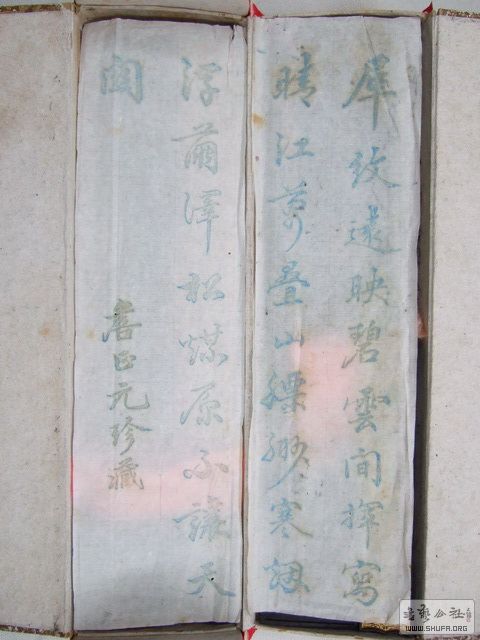 犀紋遠映碧雲間揮寫
晴江萬叠山縹緲寒烟
浮繭澤松煤原不讓天
関
詹正元珍藏
書藝公社
WWW.SHUFA.ORG